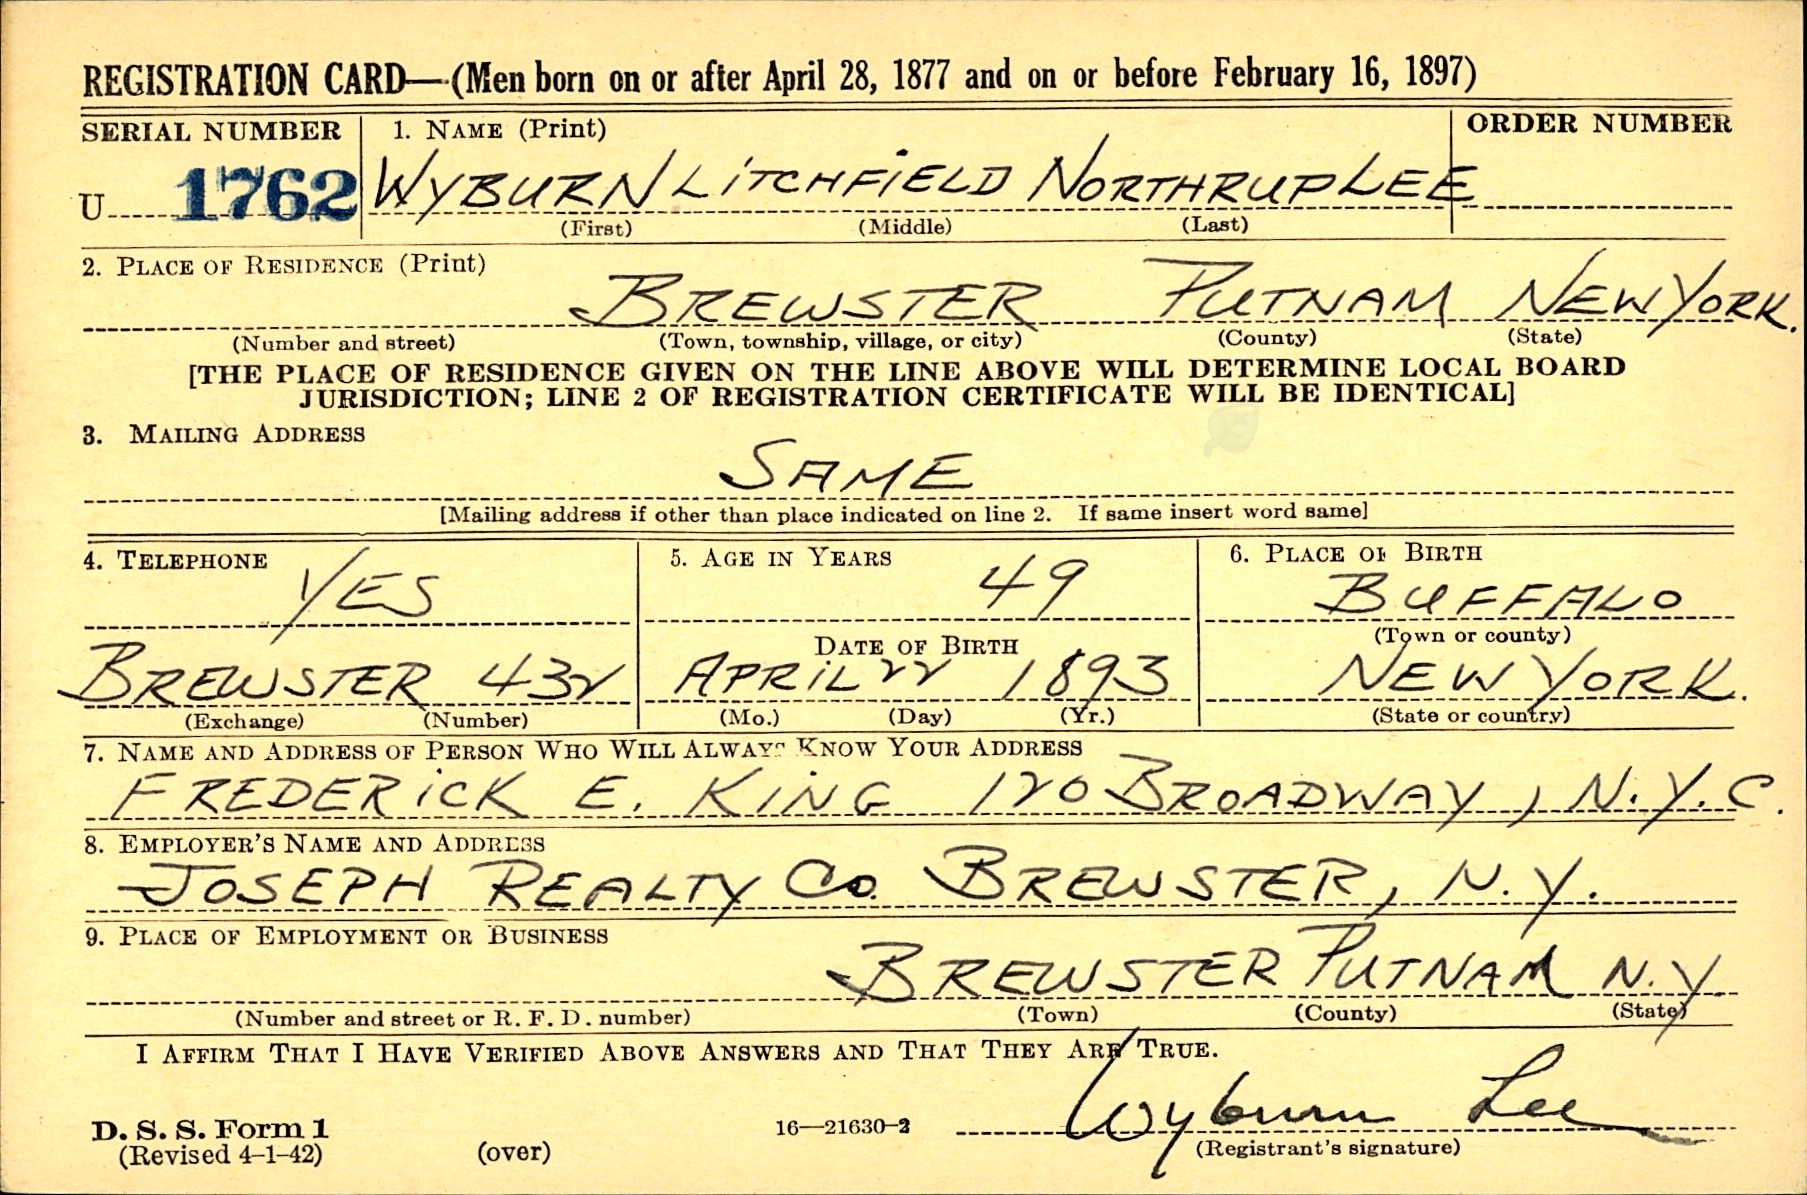 REGISTRATION CARD—(Men born on or after April 28, 1877 and on or before February 16, 1897)
SERIAL NUMBER 1. NAME (Print) ORDER NUMBER
U 1762 WYBURN LITCHFIELD NORTHRUP LEE
(First) (Middle) (Last)
2. PLACE OF RESIDENCE (Print)
BREWSTER PUTNAM NEW YORK.
(Number and street) (Town, township, village, or city) (County) (State)
[THE PLACE OF RESIDENCE GIVEN ON THE LINE ABOVE WILL DETERMINE LOCAL BOARD
JURISDICTION; LINE 2 OF REGISTRATION CERTIFICATE WILL BE IDENTICAL]
3. MAILING ADDRESS
SAME
[Mailing address if other than place indicated on line 2. If same insert word same]
4. TELEPHONE 5. AGE IN YEARS 6. PLACE OF BIRTH
YES 49 BUFFALO
DATE OF BIRTH (Town or county)
BREWSTER 432 APRIL 22 1893 NEW YORK.
(Exchange) (Number) (Mo.) (Day) (Yr.) (State or country)
7. NAME AND ADDRESS OF PERSON WHO WILL ALWAYS KNOW YOUR ADDRESS
FREDERICK E. KING 120 BROADWAY, N.Y.C.
8. EMPLOYER'S NAME AND ADDRESS
JOSEPH REALTY Co. BREWSTER, N.Y.
9. PLACE OF EMPLOYMENT OR BUSINESS
BREWSTER PUTNAM N.Y.
(Number and street or R. F. D. number) (Town) (County) (State)
I AFFIRM THAT I HAVE VERIFIED ABOVE ANSWERS AND THAT THEY ARE TRUE.
D. S. S. Form 1 16—21630-2 Wyburn Lee
(Revised 4-1-42) (over) (Registrant's signature)